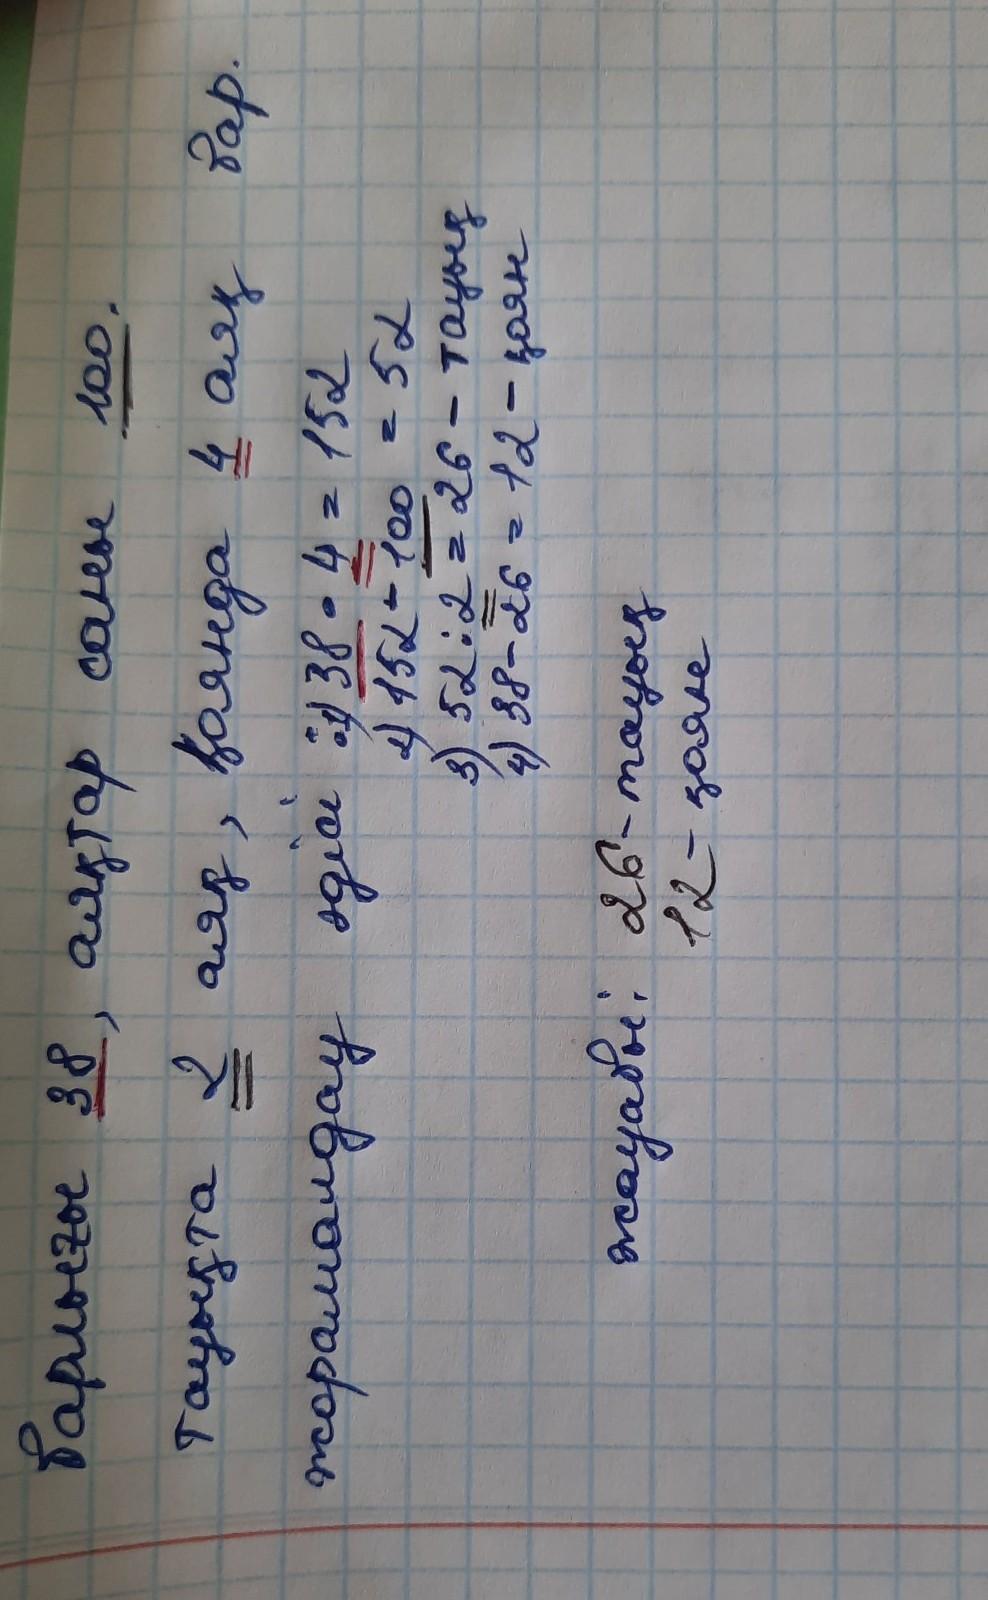 Барлығы 38, аяқтар саны 100.
Тауықта 2 аяқ, қоянда 4 аяқ бар.
жорамалдау әдісі: 1) 38 · 4 = 152
2) 152 - 100 = 52
3) 52 : 2 = 26 - тауық
4) 38 - 26 = 12 - қоян
жауабы: 26 - тауық
12 - қоян